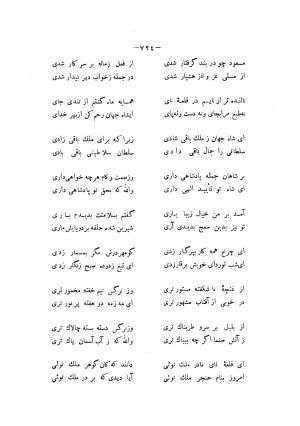 -٧٢٤-
مسعود چو در بند گرفتار شدی
از فعل زمانه بر سر کار شدی
از مستی عز و ناز هشیار شدی
در جمله زخواب دیر بیدار شدی
نالنده تر از نایم در قلعهٔ نای
همسایه ماه گشتم از تندی جای
نه طبع مرا بجای و نه دست و نه پای
ایشاه جهان رحم کن از بهر خدای
ای شاه جهان ز ملک باقی شادی
زیرا که برای ملک باقی زادی
سلطانی را جمال باقی دادی
سلطان سلاطینی باقی بادی
بر شاهان جمله پادشاهی داری
وزنعمت و کام هرچه خواهی داری
ای شاه تو تأیید الهی داری
والله که بحق تو پادشاهی داری
آمد بر من خیال زیبا یاری
گفتم بسلامت بدیدم باری
تو نیز بدین سمج بدیدی آری
شیرین شده حلقه بر دوپایش ماری
ای چرخ همه کار بپرگار زدی
گو مهر درش مگر بمسمار زدی
ای شب تو ردای خویش بر قار زدی
ای تیغ زدوده صبح زنگار زدی
از غنچهٔ ناشکفته مستور تری
وز نرگس نیم خفته مخمور تری
در خوبی از آفتاب مشهور تری
ای مه زمه دو هفته پر نور تری
از بلبل بر سرو طربناک تری
وز نرگس دسته بسته چالاک تری
از آتش صنما اگر چه بیباک تری
والله که ز آب آسمان پاک تری
ای قلعهٔ نای مادر ملک توئی
دانند که کان گوهر ملک توئی
امروز بنام خنجر ملک توئی
آیا دیدی که بر در ملک توئی